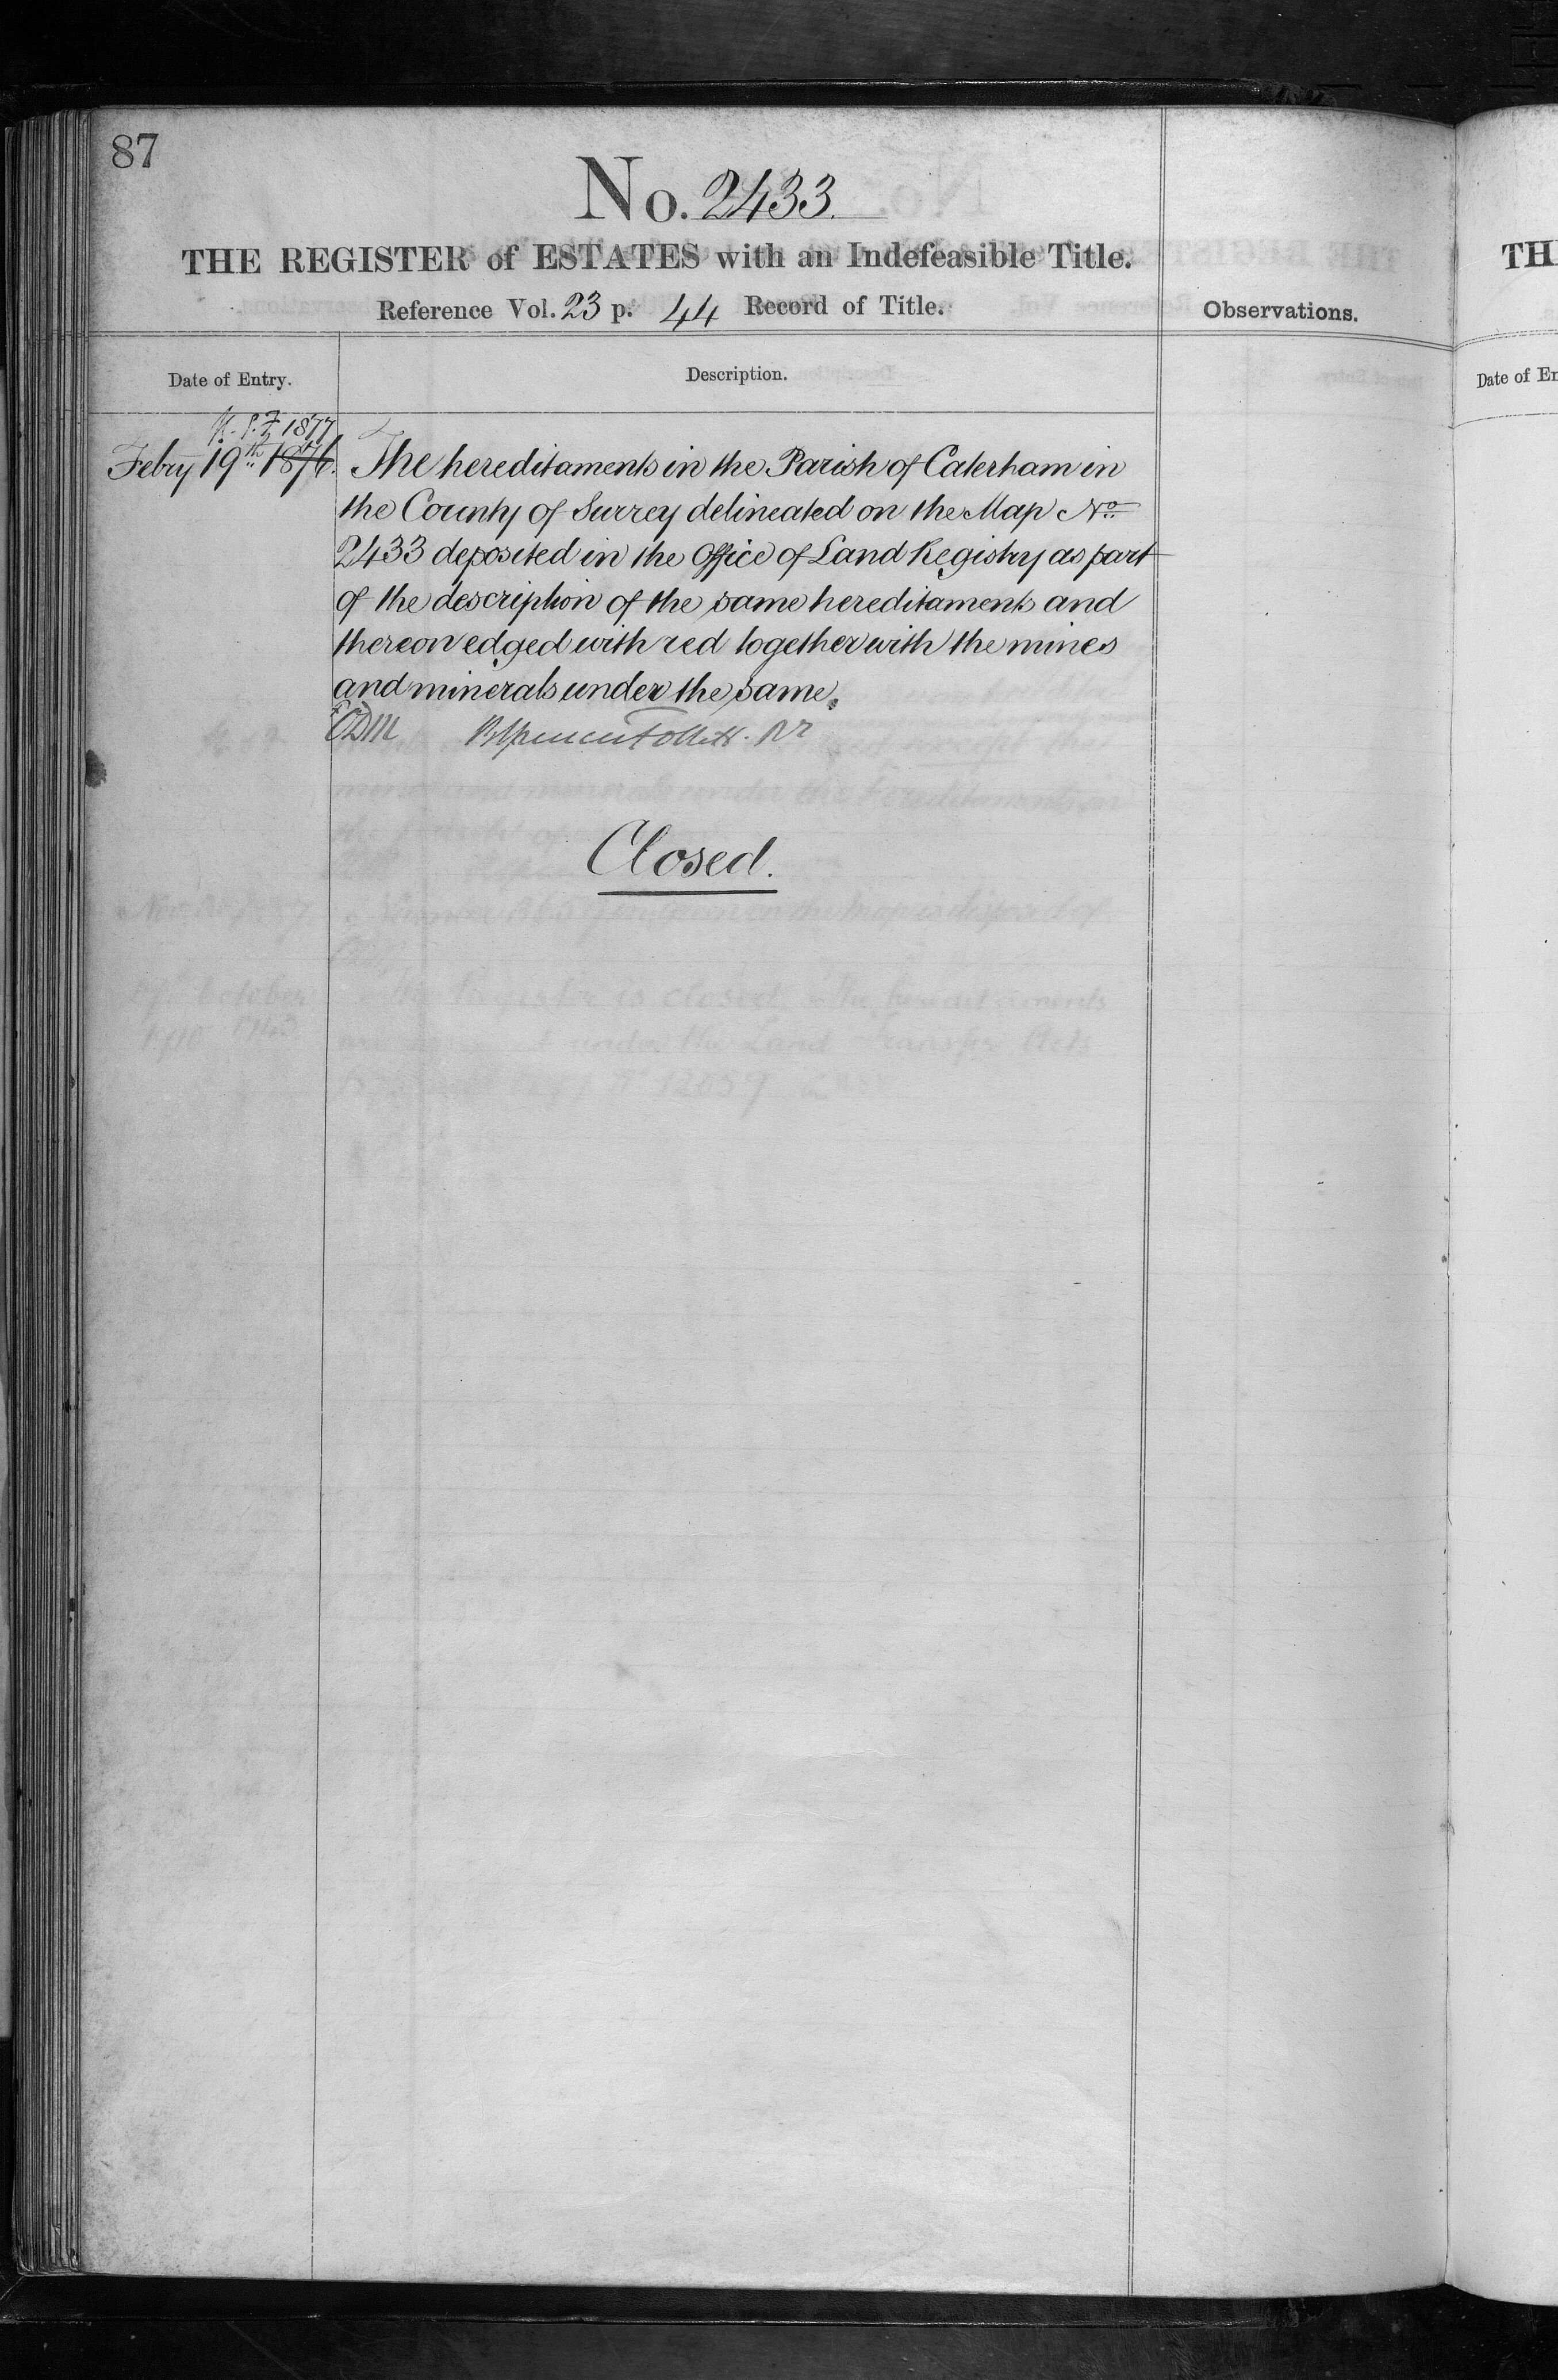 87
No. 2433.
THE REGISTER of ESTATES with an Indefeasible Title.
Reference Vol. 23 p. 44 Record of Title.
Observations.
Date of Entry.
Description.
1877
Febry 19th 1876.
The hereditaments in the Parish of Caterham in
the County of Surrey delineated on the Map No.
2433 deposited in the Office of Land Registry as part
of the description of the same hereditaments and
thereon edged with red together with the mines
and minerals under the same.
Follett.
Closed.
TH
Date of En